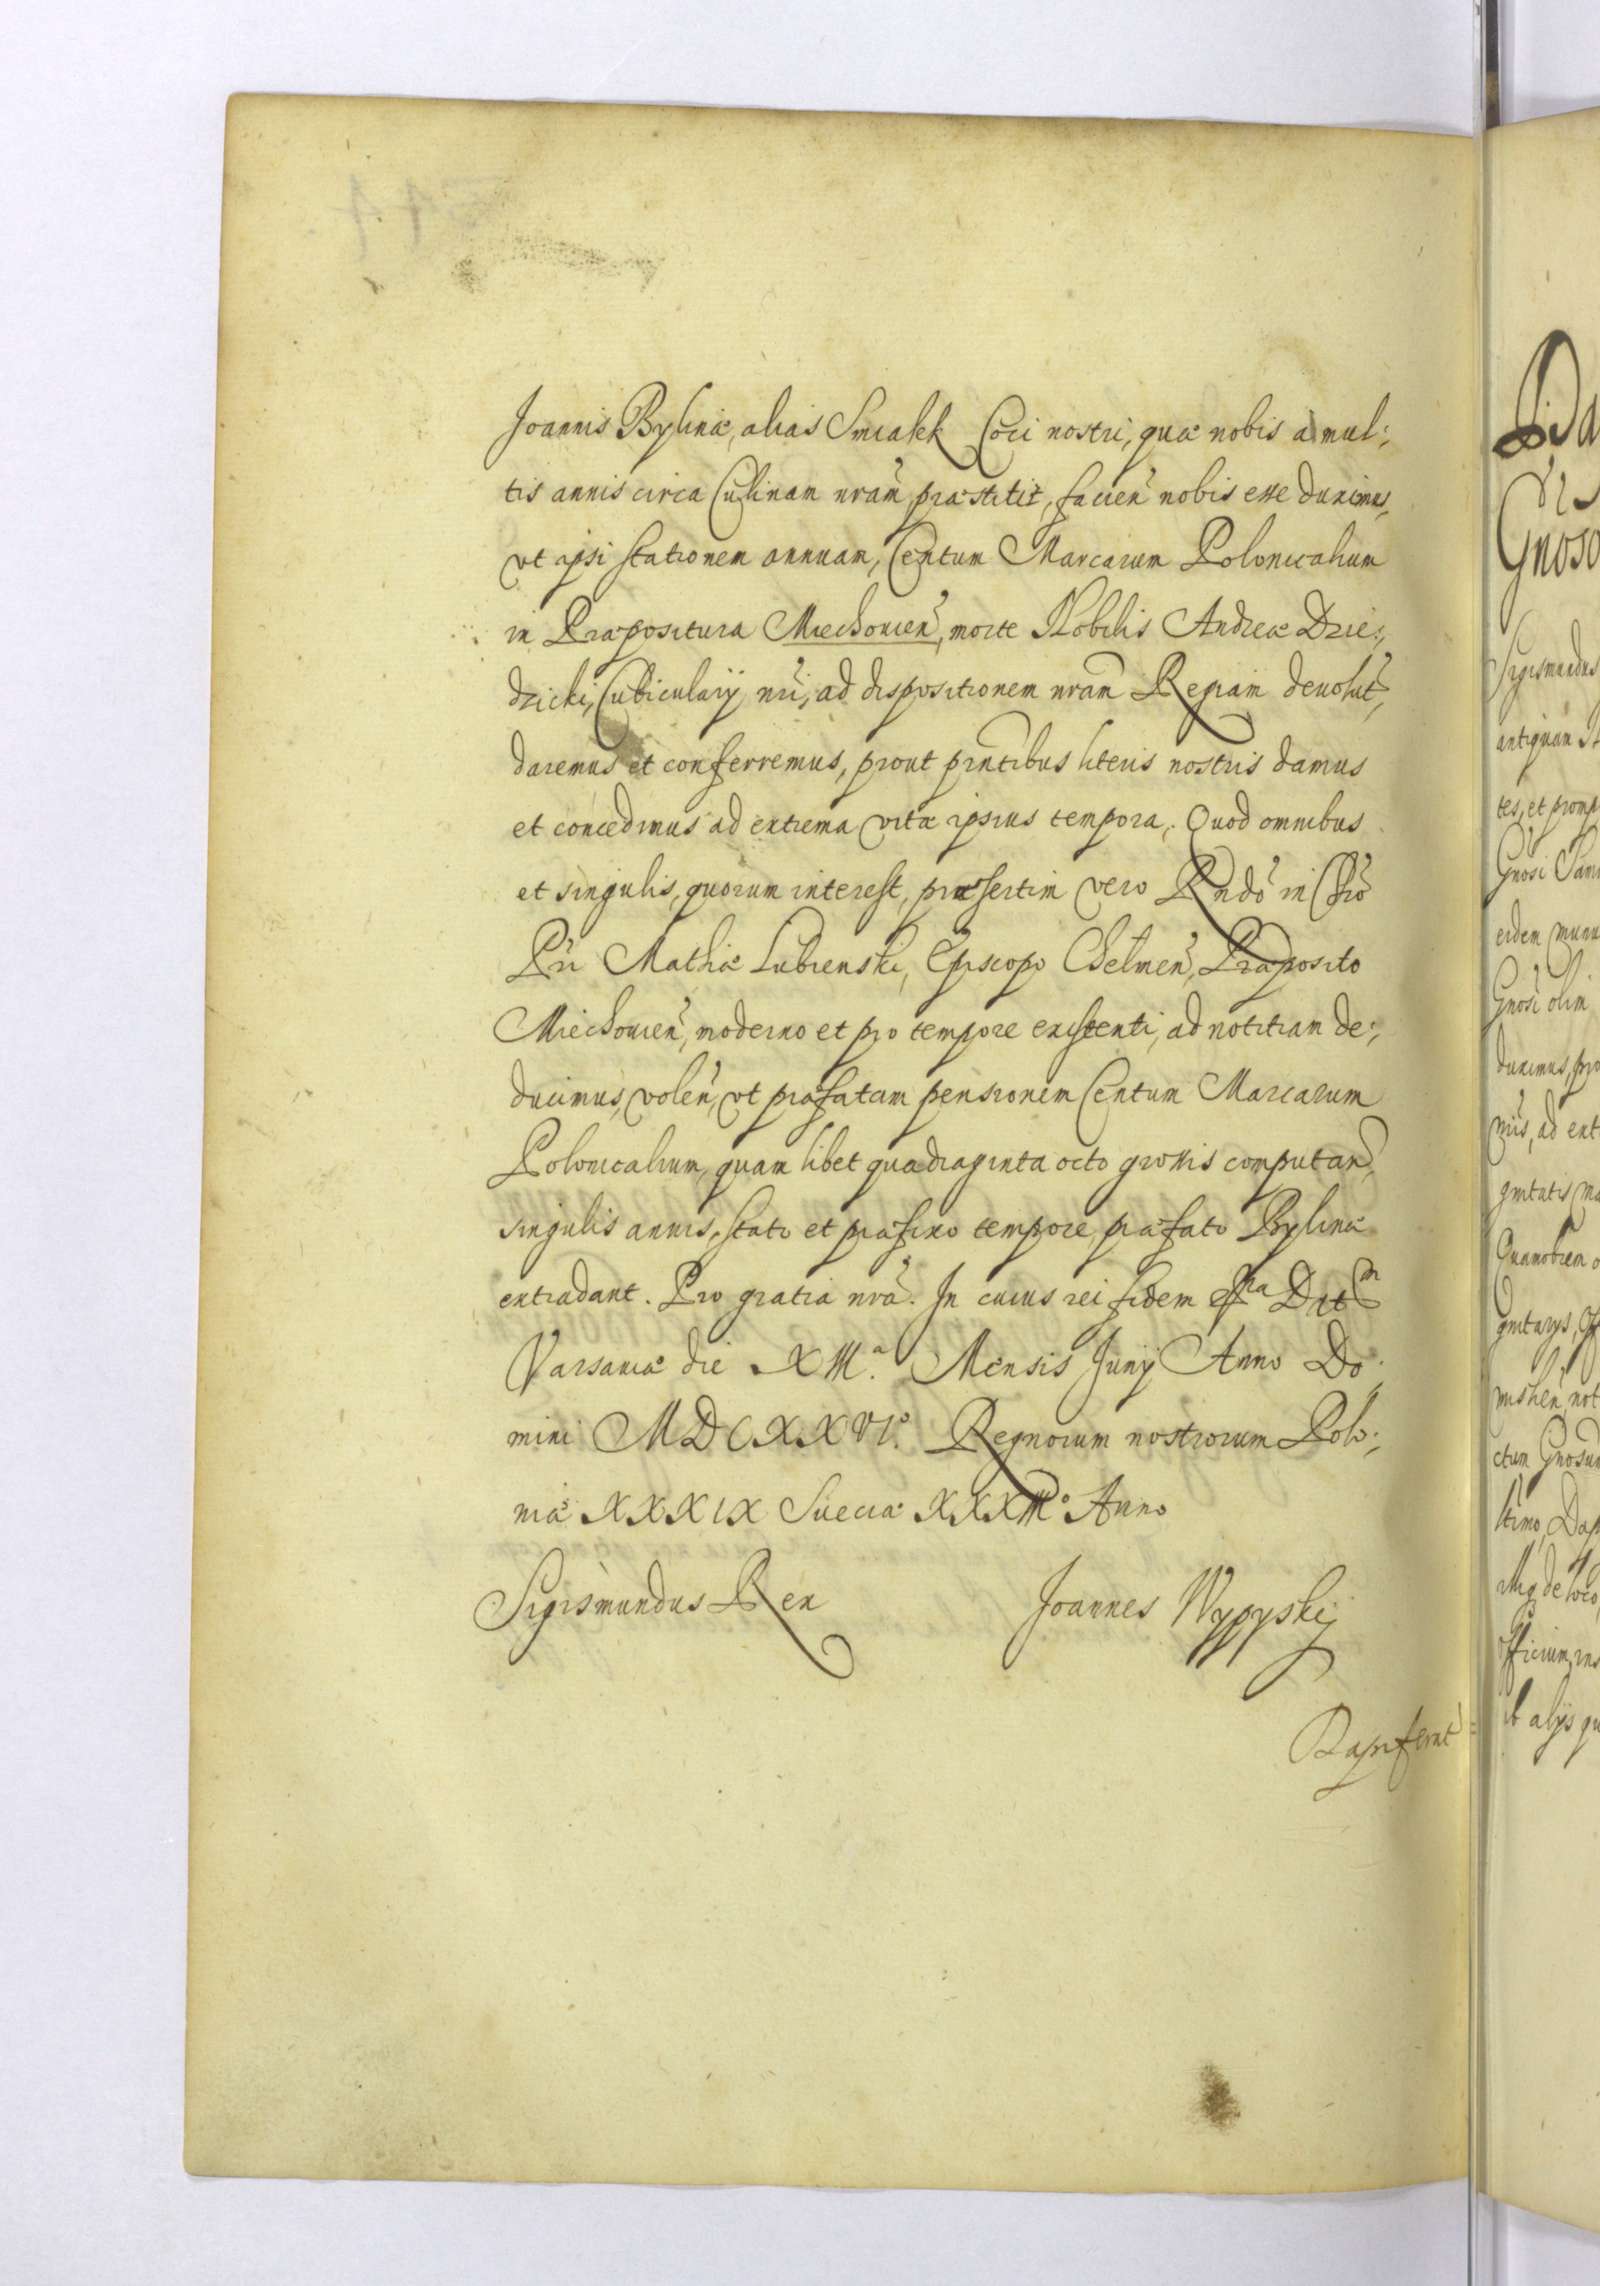 Joannis Bylinæ, alias Smialek Coci nostri, quæ nobis a mul:
tis annis circa Culinam nram̃ præstitit, facien̄ nobis esse duximus,
vt ipsi stationem annuam, Centum Marcarum Polonicalium
in Præpositura Miechouien̄, morte Nobilis Andreæ Dzie:
dzicki, Cubicularij nri, ad dispositionem nram̃ Regiam deuolut̄,
daremus et conferremus, prout pr̄ntibus literis nostris damus
et concedimus ad extrema vitæ ipsius tempora. Quod omnibus
et singulis, quorum interest, præsertim vero Rndō in Chrō
Pri Mathiæ Lubienski, Episcopo Chelmen̄, Præposito
Miechouien̄, moderno et pro tempore existenti, ad notitiam de:
ducimus, volen̄, vt præfatam pensionem Centum Marcarum
Polonicalium, quam libet quadraginta octo grossis computan̄,
singulis annis, stato et præfixo tempore, præfato Bylina
extradant. Pro gratia nrā. In cuius rei fidem
Varsauiæ die XIII.a Mensis Junij Anno Do:
mini MDCXXVI.o Regnorum nostrorum Polo:
niæ XXXIX Sueciæ XXXIII.o Anno
Sigismundus Rex Joannes Wypyskij
Dapiferat